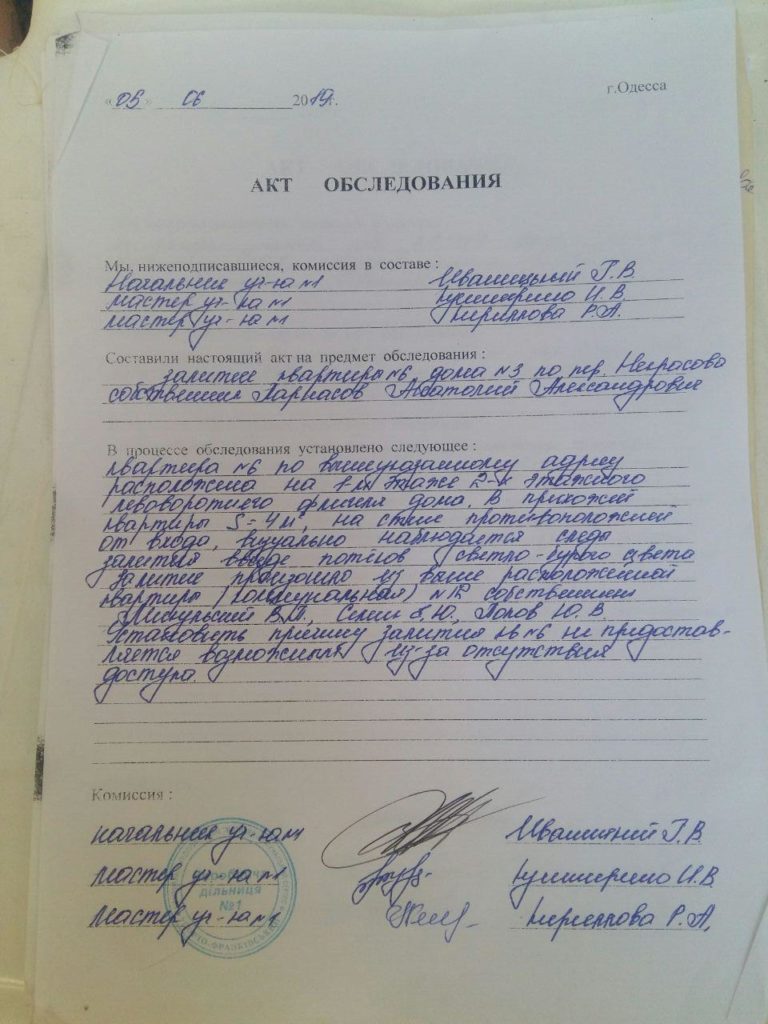 «05» 06 2019г.
г.Одесса
АКТ ОБСЛЕДОВАНИЯ
Мы, нижеподписавшиеся, комиссия в составе :
Начальник уч-ка №1 Г.В.
мастер уч-ка №1 И.В.
мастер уч-ка №1 Кириллова Р.А.
Составили настоящий акт на предмет обследования :
залитие квартиры №6 дома №3 по пер. Некрасова
собственник Анатолий Александрович
В процессе обследования установлено следующее :
квартира №6 по вышеуказанному адресу
расположена на 1м этаже 2-х этажного
левоворотнего флигеля дома. В прихожей
квартиры S=4м², на стене противоположной
от входа, визуально наблюдается следы
залития ввиде потёков светло-бурого цвета
Залитие произошло из выше расположенной
квартиры (коммунальная) №12 собственник
Попов Ю.В.
Установить причину залития кв №6 не предостав-
ляется возможным из-за отсутствия
доступа.
Комиссия :
начальник уч-ка №1 Г.В.
мастер уч-ка №1 И.В.
мастер уч-ка №1 Кириллова Р.А.
дільниця
№1